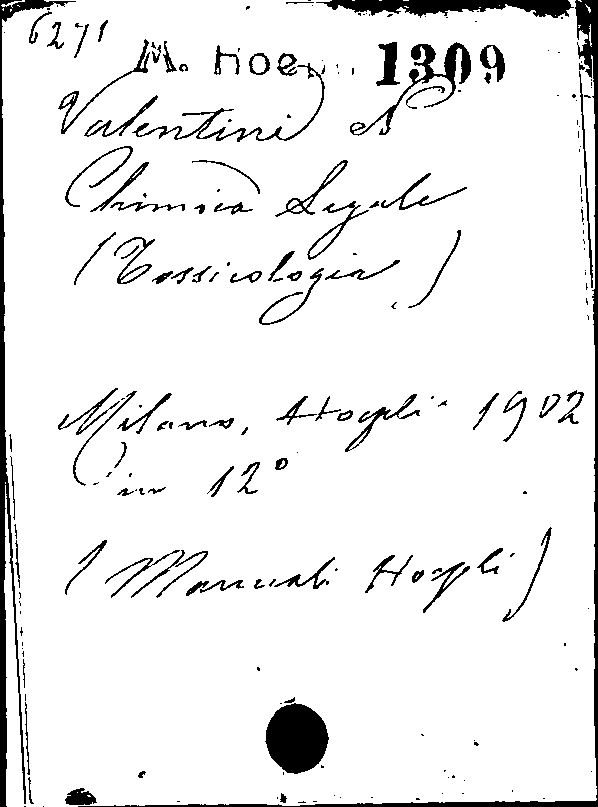 6271
M. Hoe 1309
Valentini N
Chimica Legale
(Tossicologia)
Milano, Hoepli 1902
in 12°
(Manuali Hoepli)